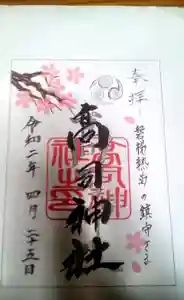 奉拝
磐梯熱海の鎮守さま
髙司神社
令和二年 四月 二十五日